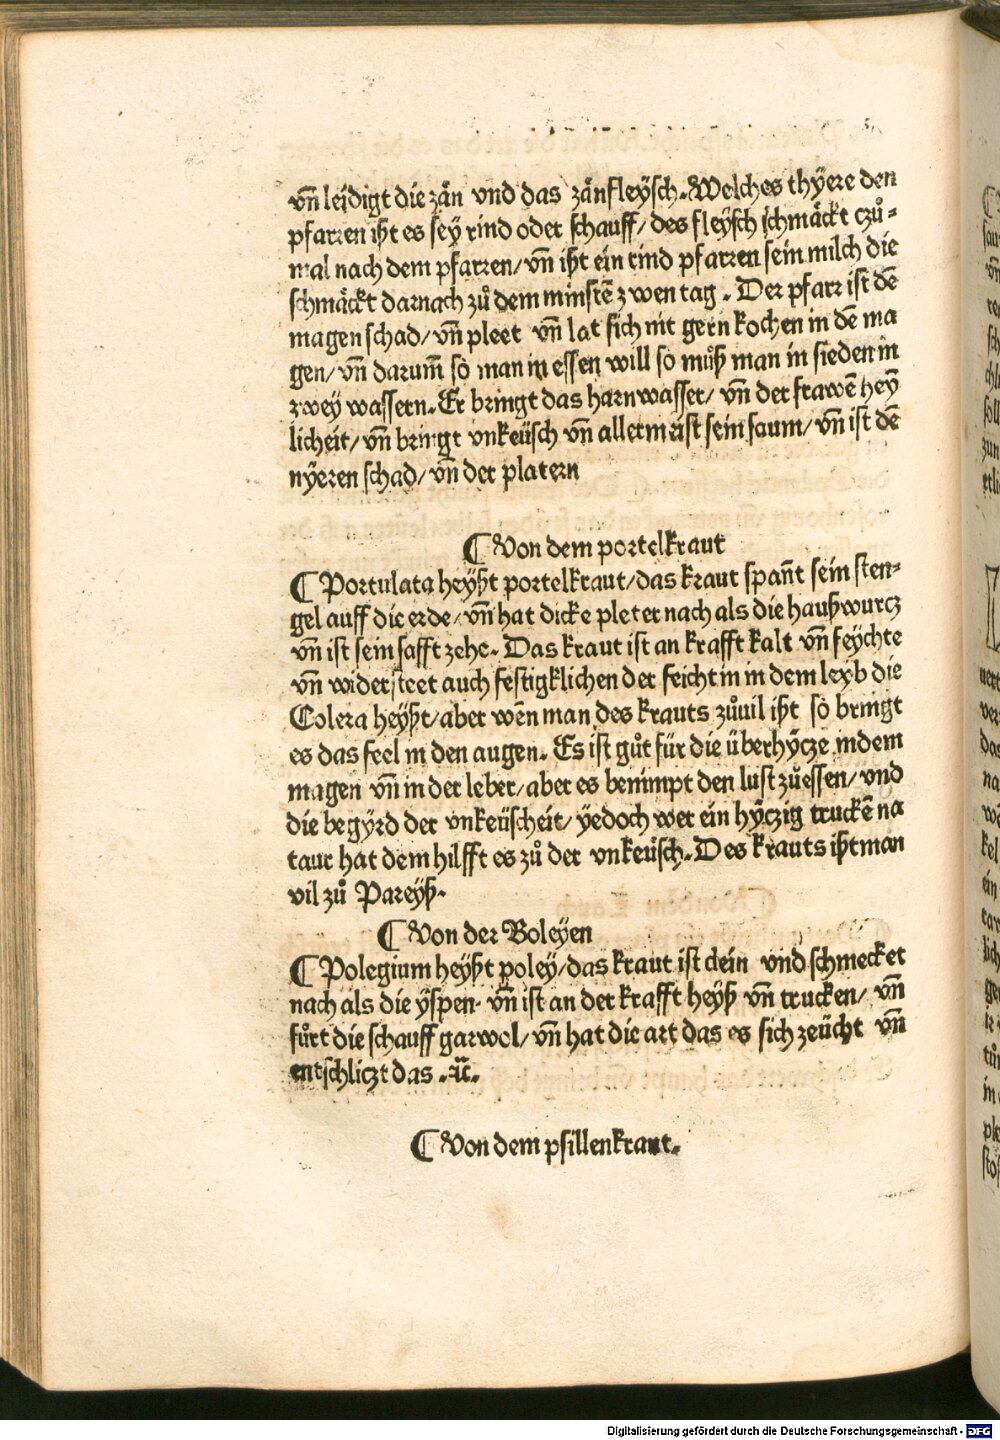 vn̄ leidigt die zän vnd das zänfleÿsch. Welches thÿere den
pfarren ißt es seÿ rind oder schauff/ des fleÿsch schmäckt czů=
mal nach dem pfarren/ vn̄ ißt ein rind pfarren sein milch die
schmäckt darnach zů dem minstē zwen tag. Der pfarr ist dē
magen schad/ vn̄ pleet vn̄ lat sich nit gern kochen in dē ma
gen/ vn̄ darum̄ so man in essen will so můß man in sieden in
zweÿ wassern. Er bringt das harnwasser/ vn̄ der frawē heÿ
licheit/ vn̄ bringt vnkeüsch vn̄ allermeist sein saum/ vn̄ ist dē
nÿeren schad/ vn̄ der platern
¶ Von dem portelkraut
¶ Portulata heÿßt portelkraut/ das kraut span̄t sein sten=
gel auff die erde/ vn̄ hat dicke pleter nach als die haußwurcz
vn̄ ist sein safft zehe. Das kraut ist an krafft kalt vn̄ feÿchte
vn̄ widersteet auch festigklichen der feichtin in dem leÿb die
Colera heÿßt/ aber wen̄ man des krauts zůuil ißt so bringt
es das feel in den augen. Es ist gůt für die überhÿcze indem
magen vn̄ in der leber/ aber es benimpt den lust zůessen/ vnd
die begÿrd der vnkeüscheit/ ÿedoch wer ein hÿczig truckē na
taur hat dem hilfft es zů der vnkeüsch. Des krauts ißtman
vil zů Pareÿß.
¶ Von der Boleÿen
¶ Polegium heÿßt poleÿ/ das kraut ist clein vnd schmecket
nach als die ÿspen. vn̄ ist an der krafft heÿß vn̄ trucken/ vn̄
fůrt die schauff garwol/ vn̄ hat die art das es sich zeücht vn̄
entschliczt das .ꝛc̄.
¶ Von dem psillenkraut.
Digitalisierung gefördert durch die Deutsche Forschungsgemeinschaft - DFG